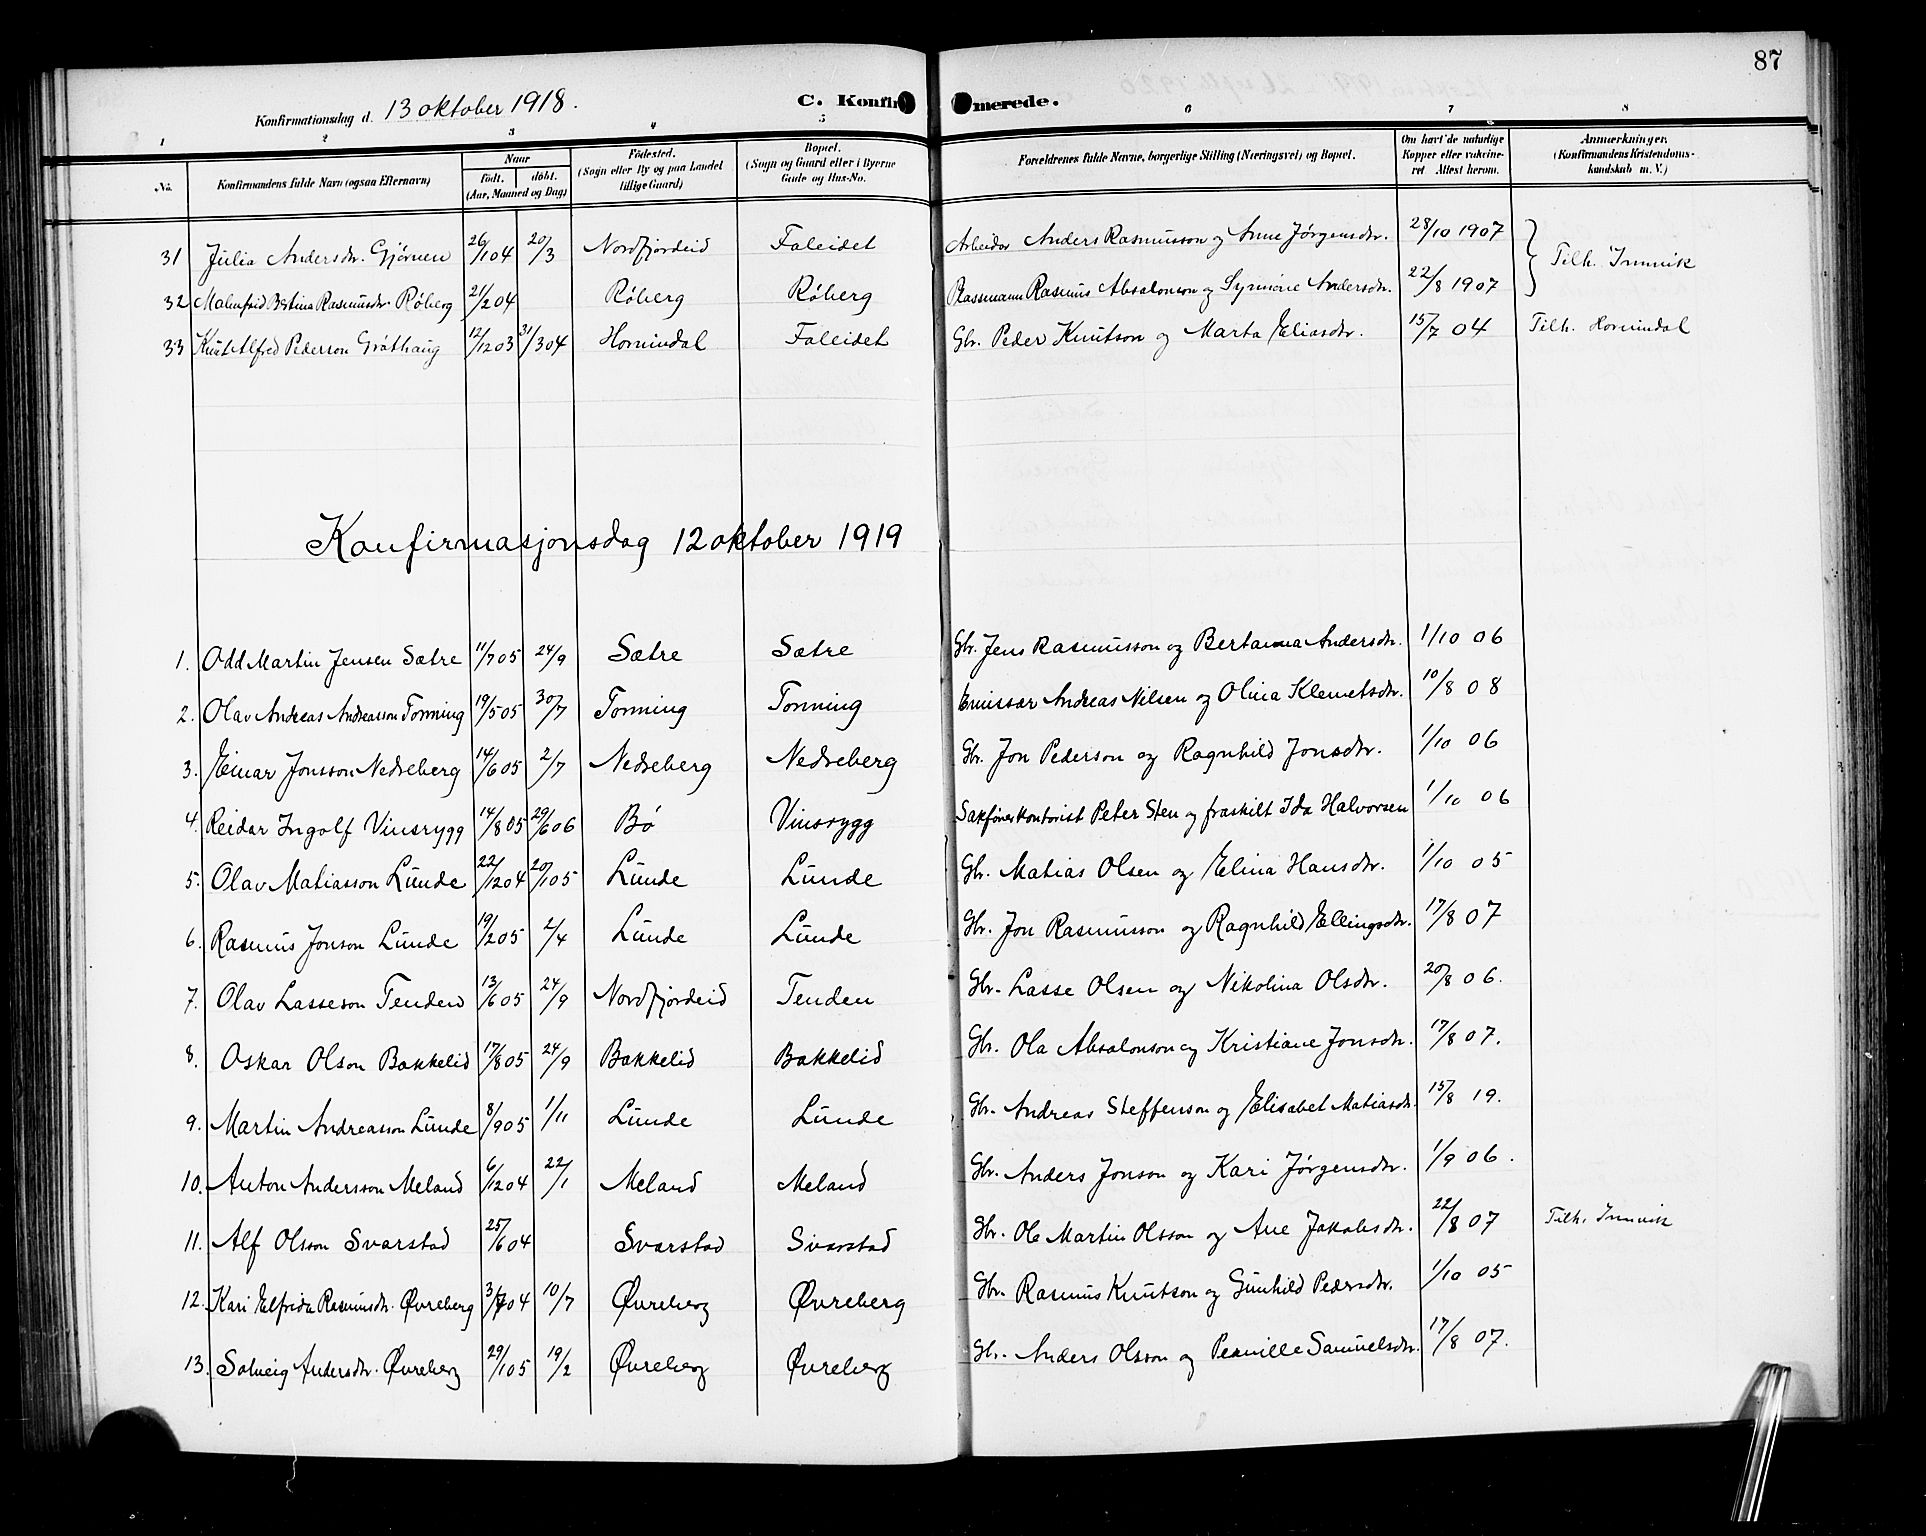 87
Konfirmationsdag d. 13 oktober 1918. C. Konfirmerede.
1 2 3 4 5 6 7 8
No. Konfirmandens fulde Navn (ogsaa Efternavn) Naar født. døbt. (Aar, Maaned og Dag) Fødested. (Sogn eller By og paa Landet tillige Gaard) Bopæl. (Sogn og Gaard eller i Byerne Gade og Hus-No. Forældrenes fulde Navne, borgerlige Stilling (Næringsvei) og Bopæl. Om havt de naturlige Kopper eller vaccineret Attest herom. Anmærkninger. (Konfirmandens Kristendomskundskab m. V.)
31 Julia Andersdr. Gjørnen 26/1 04 20/3 Nordfjordeid Faleidet Arbeider Anders Rasmusson og Anne Jørgensdr. 28/10 1907 Tilh. Innvik
32 Malmfrid Bertina Rasmusdr. Røberg 21/2 04 Røberg Røberg Plassmann Rasmus Absalonson og Symøne Andersdr. 22/8 1907
33 Knut Alfred Pederson Gråthaug 12/12 03 31/3 04 Hornindal Faleidet Gbr. Peder Knutson og Marta Eliasdr. 15/7 04 Tilh. Hornindal
Konfirmasjonsdag 12 oktober 1919
1. Odd Martin Jensen Sætre 11/7 05 24/9 Sætre Sætre Gbr. Jens Rasmusson og Bertanna Andersdr. 1/10 06
2. Olav Andreas Andreasson Tonning 19/5 05 30/7 Tonning Tonning Emissær Andreas Nilsen og Olina Klemetsdr. 10/8 08
3. Einar Jonsson Nedreberg 14/6 05 2/7 Nedreberg Nedreberg Gbr. Jon Pederson og Ragnhild Jonsdr. 1/10 06
4. Reidar Ingolf Vinsrygg 14/8 05 29/6 06 Bø Vinsrygg Sakførerkontorist Peter Sten og fraskilt Ida Halvorsen 1/10 06
5. Olav Matiasson Lunde 22/12 04 20/1 05 Lunde Lunde Gbr. Matias Olsen og Elina Hansdr. 1/10 05
6. Rasmus Jonson Lunde 19/2 05 2/4 Lunde Lunde Gbr. Jon Rasmusson og Ragnhild Ellingsdr. 17/8 07
7. Olav Lasseson Tenden 13/6 05 24/9 Nordfjordeid Tenden Gbr. Lasse Olsen og Nikolina Olsdr. 20/8 06.
8. Oskar Olson Bakkelid 17/8 05 24/9 Bakkelid Bakkelid Gbr. Ola Absalonson og Kristiane Jonsdr. 17/8 07.
9. Martin Andreasson Lunde 8/9 05 1/11 Lunde Lunde Gbr. Andreas Steffenson og Elisabet Matiasdr. 15/8 19.
10. Anton Andersson Meland 6/12 04 22/1 Meland Meland Gbr. Anders Jonson og Kari Jørgensdr. 1/9 06.
11. Alf Olsson Svarstad 25/6 04 Svarstad Svarstad Gbr. Ole Martin Olsson og Ane Jakobsdr. 22/8 07 Tilh. Innvik
12. Kari Elfrida Rasmusdr. Øvreberg 3/7 04 10/7 Øvreberg Øvreberg Gbr. Rasmus Knutson og Gunhild Pedersdr. 1/10 05
13. Solveig Andersdr. Øvreberg 29/1 05 19/2 Øvreberg Øvreberg Gbr. Anders Olsson og Pernille Samuelsdr. 17/8 07.